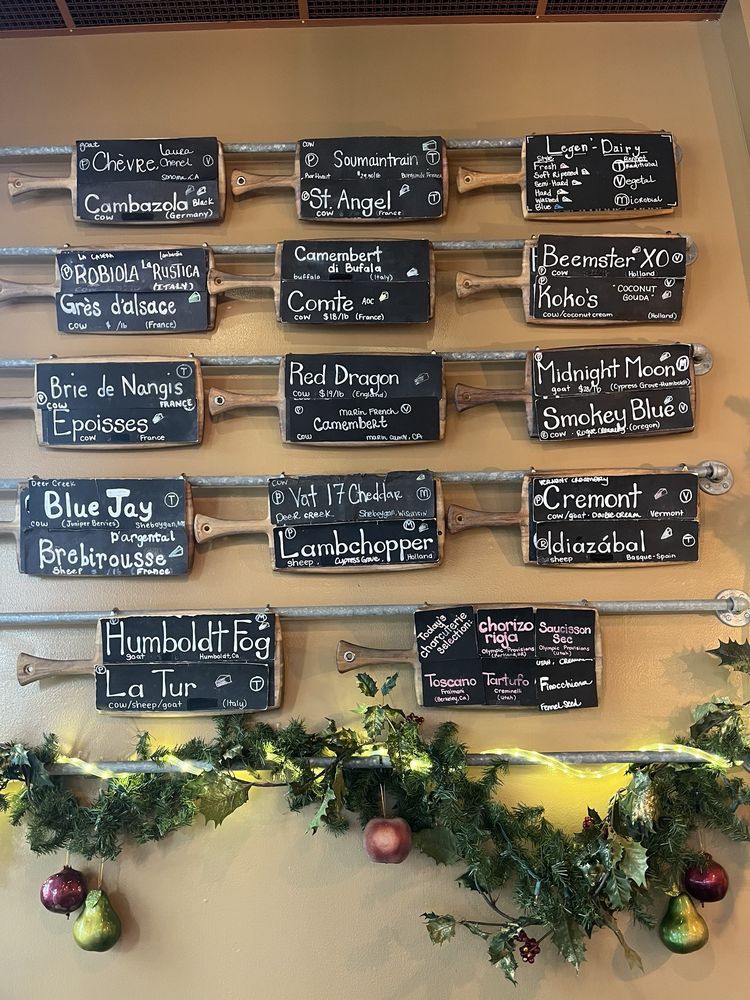 goat
Chèvre, Laura Chenel
P V
Sonoma, CA
Cambazola Black
cow (Germany)
cow
P Soumaintrain T
Burgundy, France
St. Angel
cow France
Legen-Dairy
Style Rennet
Fresh Traditional
Soft Ripened
Semi-Hard Vegetal
Hard
Washed Microbial
Blue
La Casera Lombardia
P ROBIOLA La RUSTICA
(ITALY)
Grès d'alsace
cow $ /lb (France)
Camembert
di Bufala
buffalo (Italy)
Comte AOC
cow $18/lb (France)
Beemster XO V
P cow Holland
Koko's "COCONUT GOUDA"
cow/coconut cream (Holland)
Brie de Nangis T
cow FRANCE
Epoisses
cow France
Red Dragon
cow $19/lb (England)
Marin French V
Camembert
cow Marin County, CA
P Midnight Moon M
goat $28/lb (Cypress Grove-Humboldt)
Smokey Blue V
cow Rogue Creamery (Oregon)
Deer Creek
Blue Jay T
cow (Juniper Berries) Sheboygan, WI
D'argental
Brebirousse
Sheep (France)
cow
Vat 17 Cheddar M
Deer Creek Sheboygan, Wisconsin
P Lambchopper M
sheep Cypress Grove Holland
Vermont Creamery
P Cremont V
cow/goat Double cream Vermont
Idiazábal
R sheep Basque-Spain T
Humboldt Fog M
P goat Humboldt, Ca
La Tur
cow/sheep/goat (Italy) T
Today's charcuterie selection:
chorizo rioja
Olympic Provisions
(Portland, OR)
Saucisson Sec
Olympic Provisions
(Utah)
Toscano
Fra'mani
(Berkeley, Ca)
Tartufo
Creminelli
(Utah)
Finocchiona
Fennel Seed